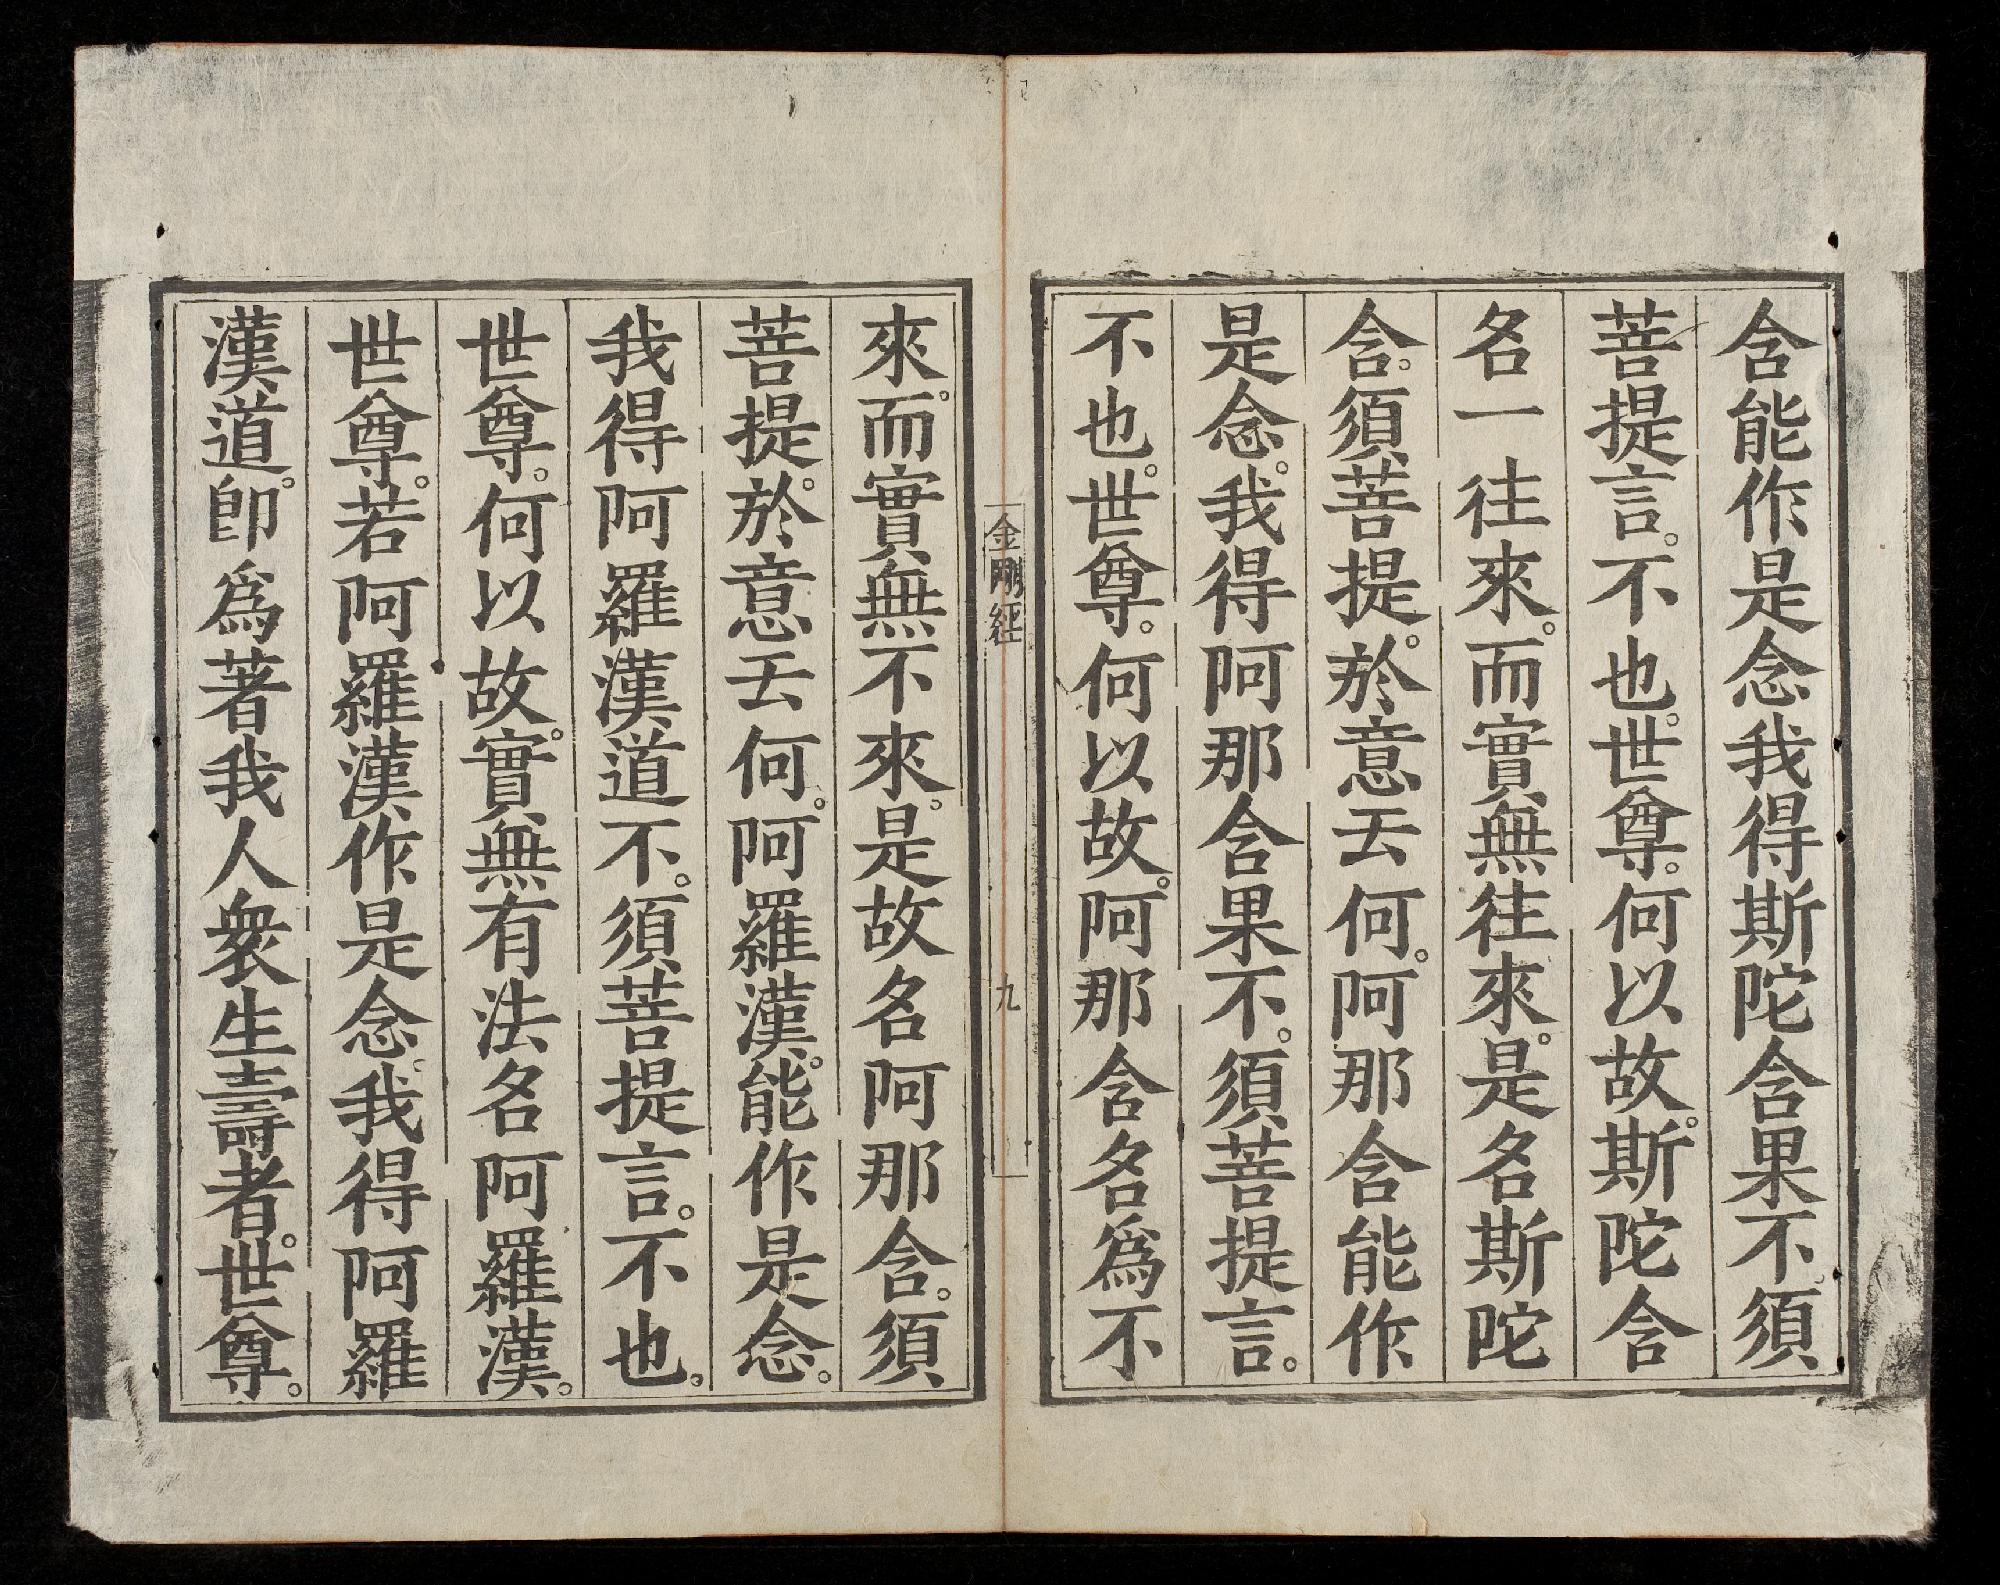 含能作是念我得斯陀含果不。須
菩提言。不也。世尊。何以故。斯陀含
名一往來。而實無往來。是名斯陀
含。須菩提。於意云何。阿那含能作
是念。我得阿那含果不。須菩提言。
不也。世尊。何以故。阿那含名爲不
金剛經
九
來。而實無不來。是故名阿那含。須
菩提。於意云何。阿羅漢。能作是念。
我得阿羅漢道不。須菩提言。不也。
世尊。何以故。實無有法名阿羅漢。
世尊。若阿羅漢作是念。我得阿羅
漢道。卽爲著我人衆生壽者。世尊。